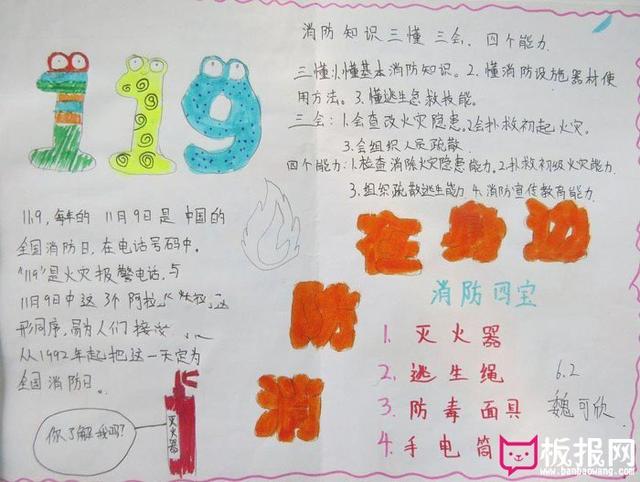 119
消防知识三懂 三会、四个能力
三懂:1.懂基本消防知识。2.懂消防设施器材使
用方法。3.懂逃生急救技能。
三会:1.会查改火灾隐患,2.会扑救初起火灾。
3.会组织人员疏散.
四个能力:1.检查消除火灾隐患能力.2.扑救初级火灾能力.
3.组织疏散逃生能力 4.消防宣传教育能力.
119,每年的 11月9日是 中国的
全国消防日,在电话号码中。
"119"是火灾报警电话.与
11月9日中这3个阿拉
形同序,易为人们接
从1992年起把这一天定为
全国消防日。
你了解我吗?
灭火器
消防
在身边
消防四宝
1. 灭火器
2. 逃生绳
3. 防毒面具
4. 手电筒
6.2
魏可欣
板报网
www.banbaowang.com